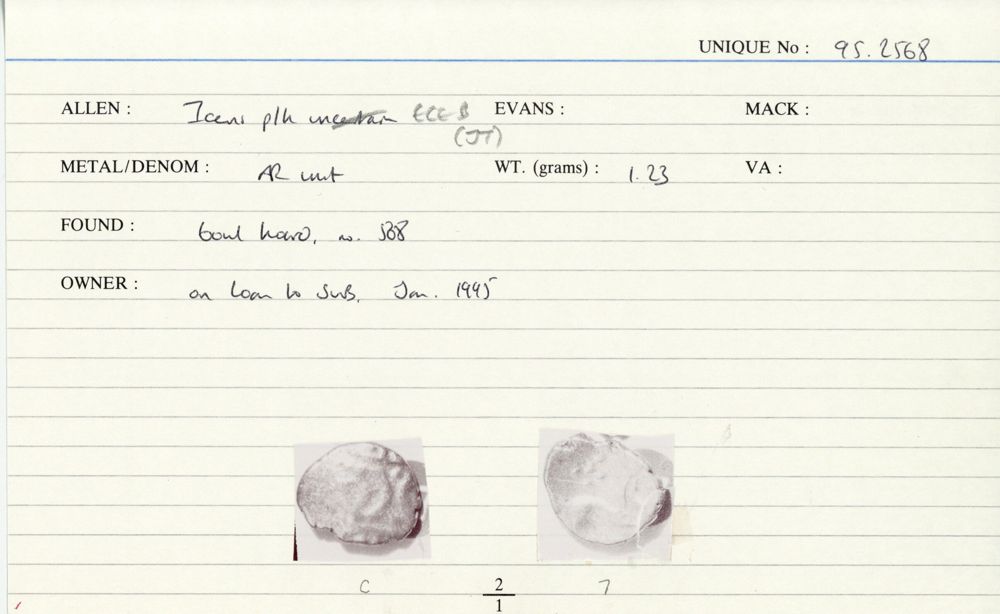 UNIQUE No : 95.2568
ALLEN : Iceni p/h uncertain ECE B EVANS : MACK :
(JT)
METAL/DENOM : AR unit WT. (grams) : 1.23 VA :
FOUND : bowl hoard, no.
OWNER : on loan to SUB, Jan. 1995
C 2 7
1